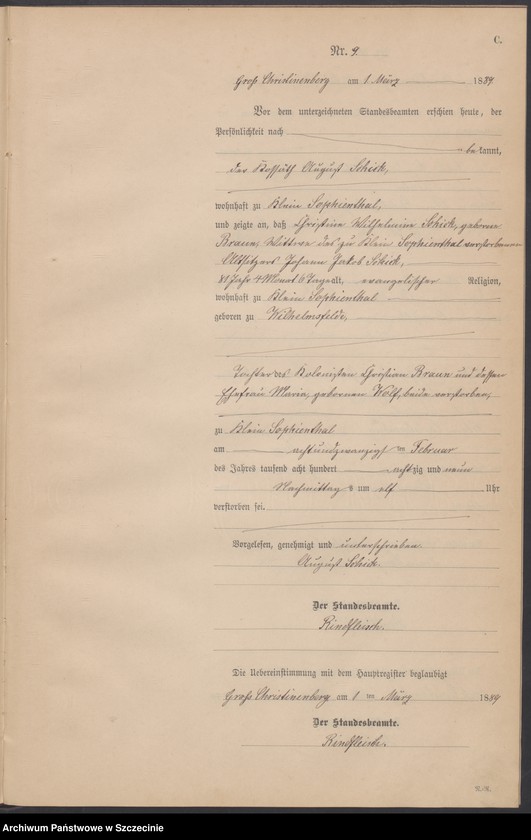 C.
Nr. 9.
Groß Christinenberg am 1 März 1889
Vor dem unterzeichneten Standesbeamten erschien heute, der
Persönlichkeit nach
bekannt,
der Kossäth August Schick,
wohnhaft zu Klein Sophienthal,
und zeigte an, daß Christine Wilhelmine Schick, geborene
Braun, Wittwe des zu Klein Sophienthal verstorbenen
Altsitzers Johann Jakob Schick,
81 Jahr 4 Monat 6 Tage alt, evangelischer Religion,
wohnhaft zu Klein Sophienthal
geboren zu Wilhelmsfelde,
Tochter des Kolonisten Christian Braun und dessen
Ehefrau Maria, gebornen Wolf, beide verstorben,
zu Klein Sophienthal
am achtundzwanzigsten Februar
des Jahres tausend acht hundert achtzig und neun
Nachmittags um elf Uhr
verstorben sei.
Vorgelesen, genehmigt und unterschrieben
August Schick.
Der Standesbeamte.
Rindfleisch.
Die Uebereinstimmung mit dem Hauptregister beglaubigt
Groß Christinenberg am 1 ten März 1889
Der Standesbeamte.
Rindfleisch.
Archiwum Państwowe w Szczecinie